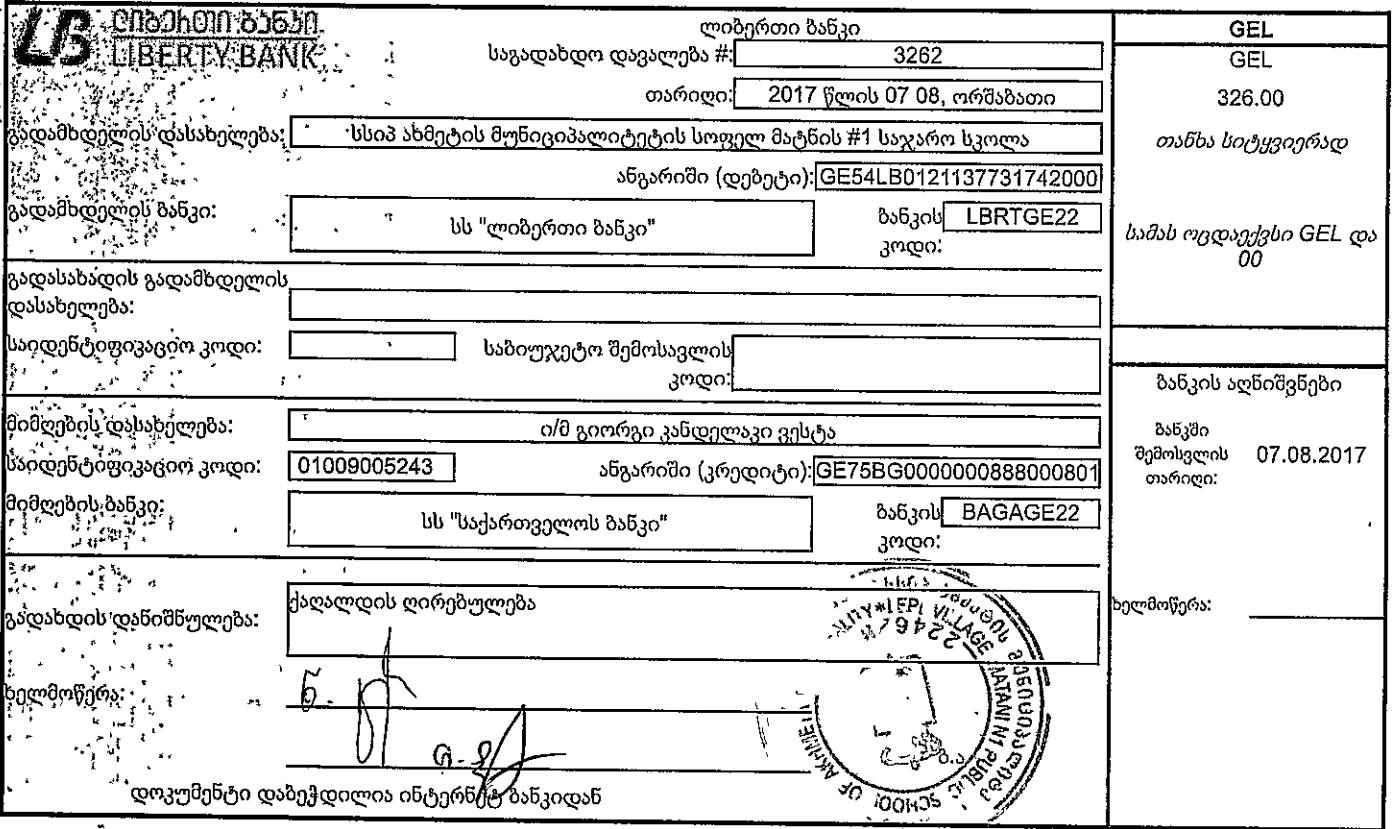 ლიბერთი ბანკი
LIBERTY BANK
ლიბერთი ბანკი
საგადახდო დავალება #: 3262
თარიღი: 2017 წლის 07 08, ორშაბათი
გადამხდელის დასახელება: სსიპ ახმეტის მუნიციპალიტეტის სოფელ მატნის #1 საჯარო სკოლა
ანგარიში (დებეტი): GE54LB0121137731742000
გადამხდელის ბანკი: სს "ლიბერთი ბანკი" ბანკის კოდი: LBRTGE22
გადასახადის გადამხდელის
დასახელება:
საიდენტიფიკაციო კოდი: საბიუჯეტო შემოსავლის
კოდი:
მიმღების დასახელება: ი/მ გიორგი კანდელაკი ვესტა
საიდენტიფიკაციო კოდი: 01009005243 ანგარიში (კრედიტი): GE75BG0000000888000801
მიმღების ბანკი: სს "საქართველოს ბანკი" ბანკის კოდი: BAGAGE22
გადახდის დანიშნულება: ქაღალდის ღირებულება
ხელმოწერა:
დოკუმენტი დაბეჭდილია ინტერნეტ ბანკიდან
GEL
GEL
326.00
თანხა სიტყვიერად
სამას ოცდაექვსი GEL და
00
ბანკის აღნიშვნები
ბანკში
შემოსვლის 07.08.2017
თარიღი:
ხელმოწერა:
VILLAGE MATANI N1 PUBLIC SCHOOL OF AKHMETA